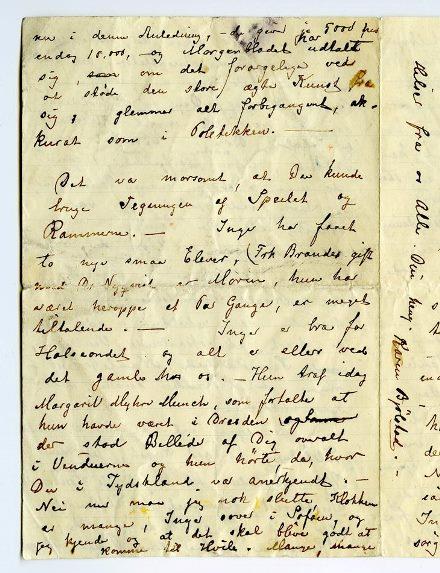 nu i denne Anledning, – de gav jo 5000 
endog 10,000, – og Morgenbladet udtalte
sig, som om det forargelige ved
at støde den store ægte Kunst fra
sig, glemmer alt forbigangent, ak-
kurat som i Politikken. —
Det var morsomt, at Du kunde
bruge Tegningen af Speilet og
Rammerne. — Inger har faaet
to nye smaa Elever, (Frk Brandes gift
med Dr. er Moren, hun har
været heroppe et Par Gange, er meget
tiltalende. — Inger er bra for
Halsondet og alt er ellers ved
det gamle os. — Hun traf idag
Margarit Munch, som fortalte at
hun havde vært i Dresden
der stod Billede af Dig overalt
i Vinduerne og hun hørte, da, hvor
Du i Tydskland var anerkjendt. —
Nei nu maa jeg nok slutte Klokken
er mange, Inger sover i Sofaen, og
jeg kjende og at det skal blive godt at
komme til Hvile. Mange, mange
Hilsner fra os Alle. Din heng. Karen Bjølstad.